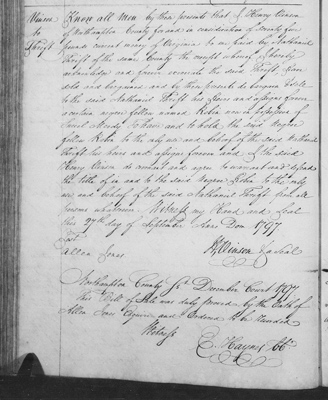 Vinson
to
Thrift
Know all men by these presents that I Henry Vinson
of Northampton County for and in consideration of Seventy five
pounds current money of Virginia to me paid by Nathaniel
Thrift of the same County the receipt whereof I hereby
acknowledge and given over unto the said Thrift, have
sold and bargained and by these presents do bargain & sell
to the said Nathaniel Thrift his heirs and assigns forever
a certain negroe fellow named Robin now in possession of
Moody to have and to hold the said Negro
fellow Robin to the only use and behoof of the said Nathaniel
Thrift his heirs and assigns forever and I the said
Henry Vinson do warrant and agree to warrant and defend
the title of in and to the said Negroe Robin to the only
use and behoof of the said Nathaniel Thrift from all
persons whatsoever Witness my Hand and Seal
this 27th day of September Anno Dom 1797
Test
Allen Jones
H Vinson Seal
Northampton County Sct December Court 1797
this Bill of Sale was duly proved by the Oath of
Allen Jones Esquire and Ordered to be Recorded
Witness
E. Haynes CC